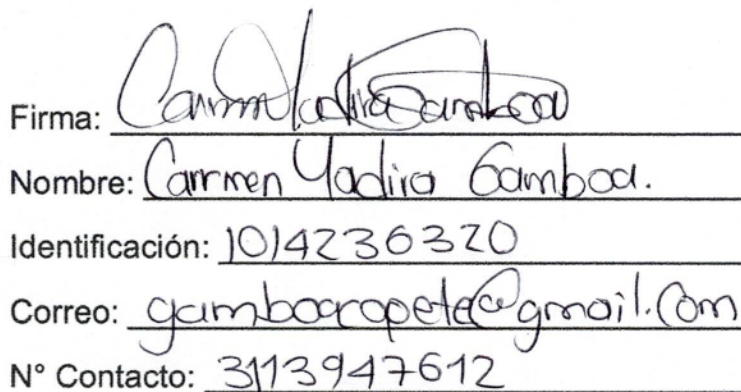 Firma: Carmen Yadira Gamboa
Nombre: Carmen Yadira Gamboa.
Identificación: 1014236320
Correo: gamboaropete@gmail.com
N° Contacto: 3113947612